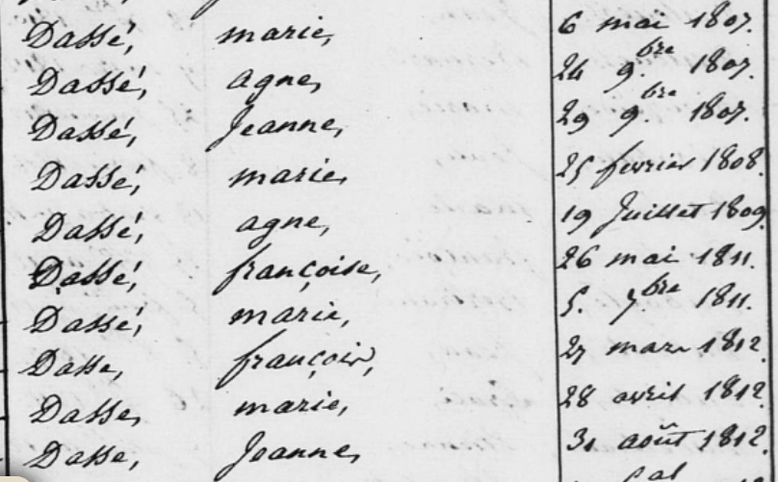 Dassé, marie, 6 mai 1807.
Dassé, agne, 24 9.bre 1807.
Dassé, Jeanne, 29 9.bre 1807.
Dassé, marie, 25 fevrier 1808.
Dassé, agne, 19 Juillet 1809.
Dassé, françoise, 26 mai 1811.
Dassé, marie, 5. 7.bre 1811.
Dasse, françois, 27 mars 1812.
Dasse, marie, 28 avril 1812.
Dasse, Jeanne, 31 août 1812.